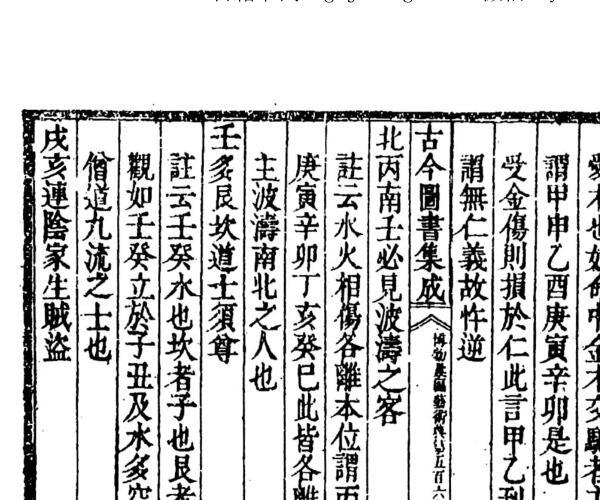 愛木也如命中金木交馳者
謂甲申乙酉庚寅辛卯是也
受金傷則損於仁此言甲乙
謂無仁義故忤逆
古今圖書集成
博物彙編藝術典第五百六
北丙南壬必見波濤之客
註云水火相傷各離本位謂丙
庚寅辛卯丁亥癸巳此皆各離
主波濤南北之人也
壬多艮坎道士須尊
註云壬癸水也坎者子也艮者
觀如壬癸立於子丑及水多
僧道九流之士也
戌亥連陰家生賊盜